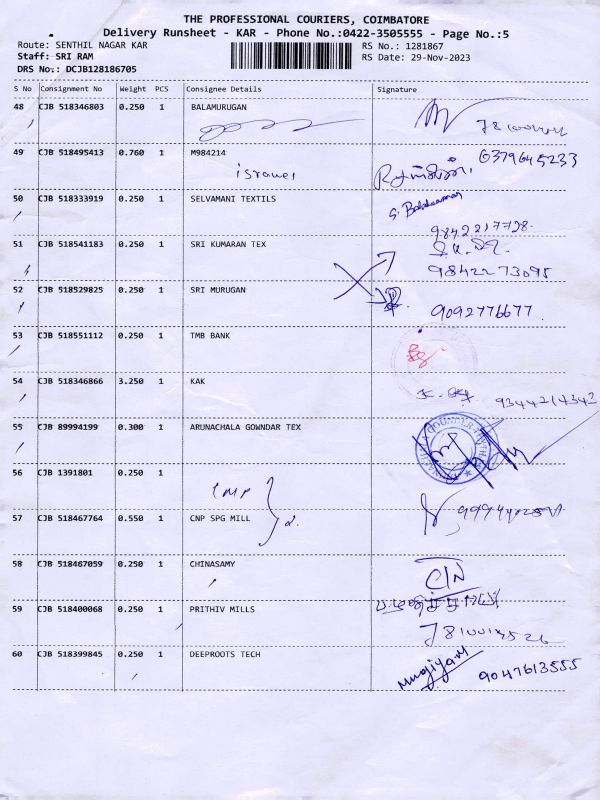 THE PROFESSIONAL COURIERS, COIMBATORE
Delivery Runsheet - KAR - Phone No.:0422-3505555 - Page No.:5
Route: SENTHIL NAGAR KAR
RS No.: 1281867
Staff: SRI RAM
RS Date: 29-Nov-2023
DRS No.: DCJB128186705
S No Consignment No Weight PCS Consignee Details Signature
48 CJB 518346803 0.250 1 BALAMURUGAN
49 CJB 518495413 0.760 1 M984214
6379645233
50 CJB 518333919 0.250 1 SELVAMANI TEXTILS
9842217728
51 CJB 518541183 0.250 1 SRI KUMARAN TEX
9842273095
52 CJB 518529825 0.250 1 SRI MURUGAN
9092776677
53 CJB 518551112 0.250 1 TMB BANK
54 CJB 518346866 3.250 1 KAK
9344214342
55 CJB 89994199 0.300 1 ARUNACHALA GOWNDAR TEX
56 CJB 1391801 0.250 1
57 CJB 518467764 0.550 1 CNP SPG MILL
58 CJB 518467059 0.250 1 CHINASAMY
59 CJB 518400068 0.250 1 PRITHIV MILLS
60 CJB 518399845 0.250 1 DEEPROOTS TECH
9047613555